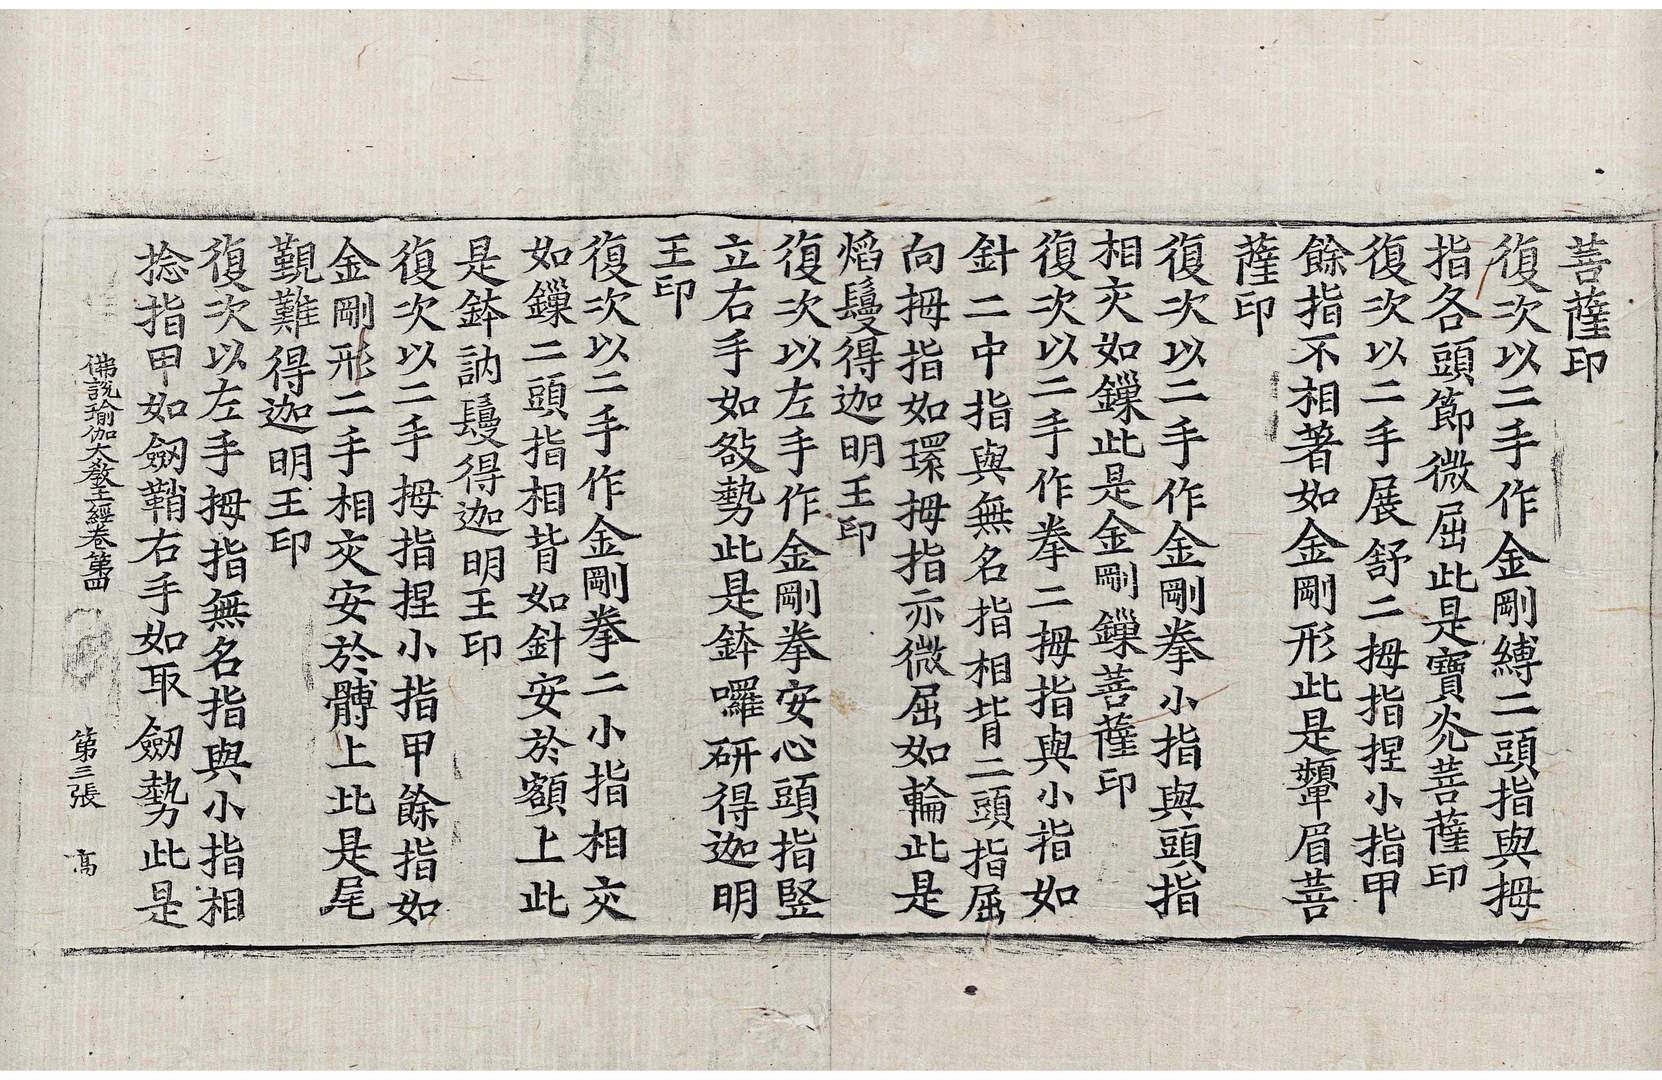 菩薩印
復次以二手作金剛縛二頭指與拇
指各頭節微屈此是寶光菩薩印
復次以二手展舒二拇指捏小指甲
餘指不相著如金剛形此是顰眉菩
薩印
復次以二手作金剛拳小指與頭指
相交如鏁此是金剛鏁菩薩印
復次以二手作拳二拇指與小指如
針二中指與無名指相背二頭指屈
向拇指如環拇指亦微屈如輪此是
焰鬘得迦明王印
復次以左手作金剛拳安心頭指竪
立右手如敍勢此是鉢囉研得迦明
王印
復次以二手作金剛拳二小指相交
如鏁二頭指相背如針安於額上此
是鉢訥鬘得迦明王印
復次以二手拇指捏小指甲餘指如
金剛形二手相交安於髆上此是尾
覲難得迦明王印
復次以左手拇指無名指與小指相
捻指甲如劒鞘右手如取劒勢此是
佛說瑜伽大敎王經卷第四 第三張 髙